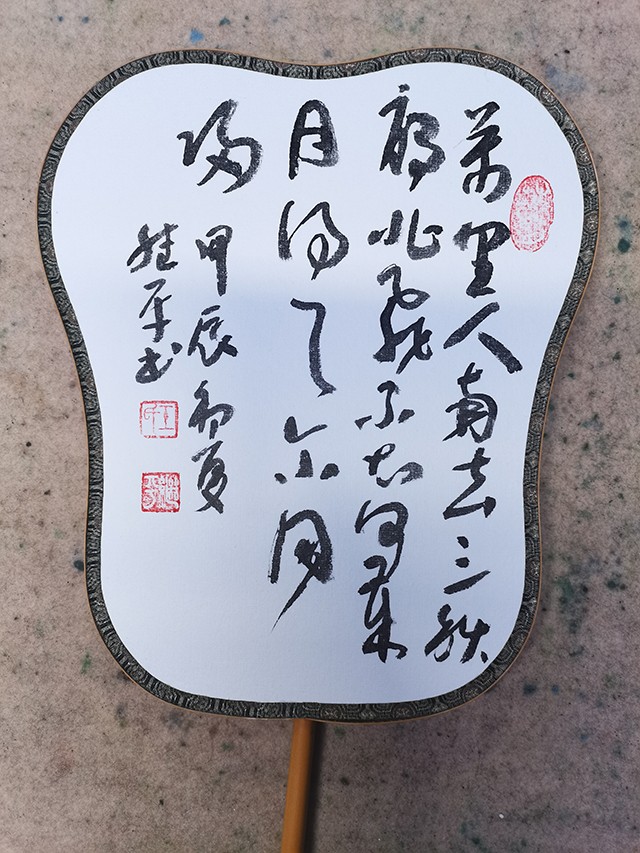 萬里人南去三秋
雁北飛不知何歲
月得与尔同
歸
甲辰初夏
平书